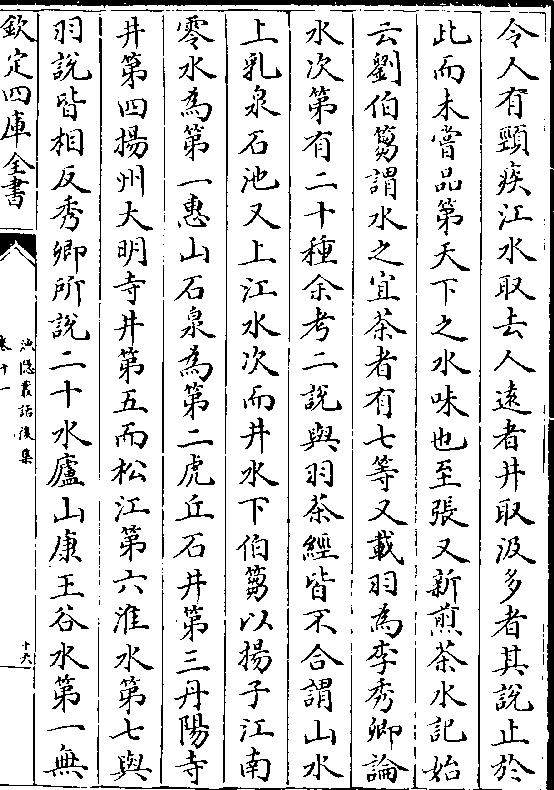 令人有頸疾江水取去人遠者井取汲多者其說止於
此而未嘗品第天下之水味也至張又新煎茶水記始
云劉伯芻謂水之宜茶者有七等又載羽為李秀卿論
水次第有二十種余考二說與羽茶經皆不合謂山水
上乳泉石池又上江水次而井水下伯芻以揚子江南
零水為第一惠山石泉為第二虎丘石井第三丹陽寺
井第四揚州大明寺井第五而松江第六淮水第七與
羽說皆相反秀卿所說二十水廬山康王谷水第一無
欽定四庫全書
漁隱叢話後集
卷十一
十六